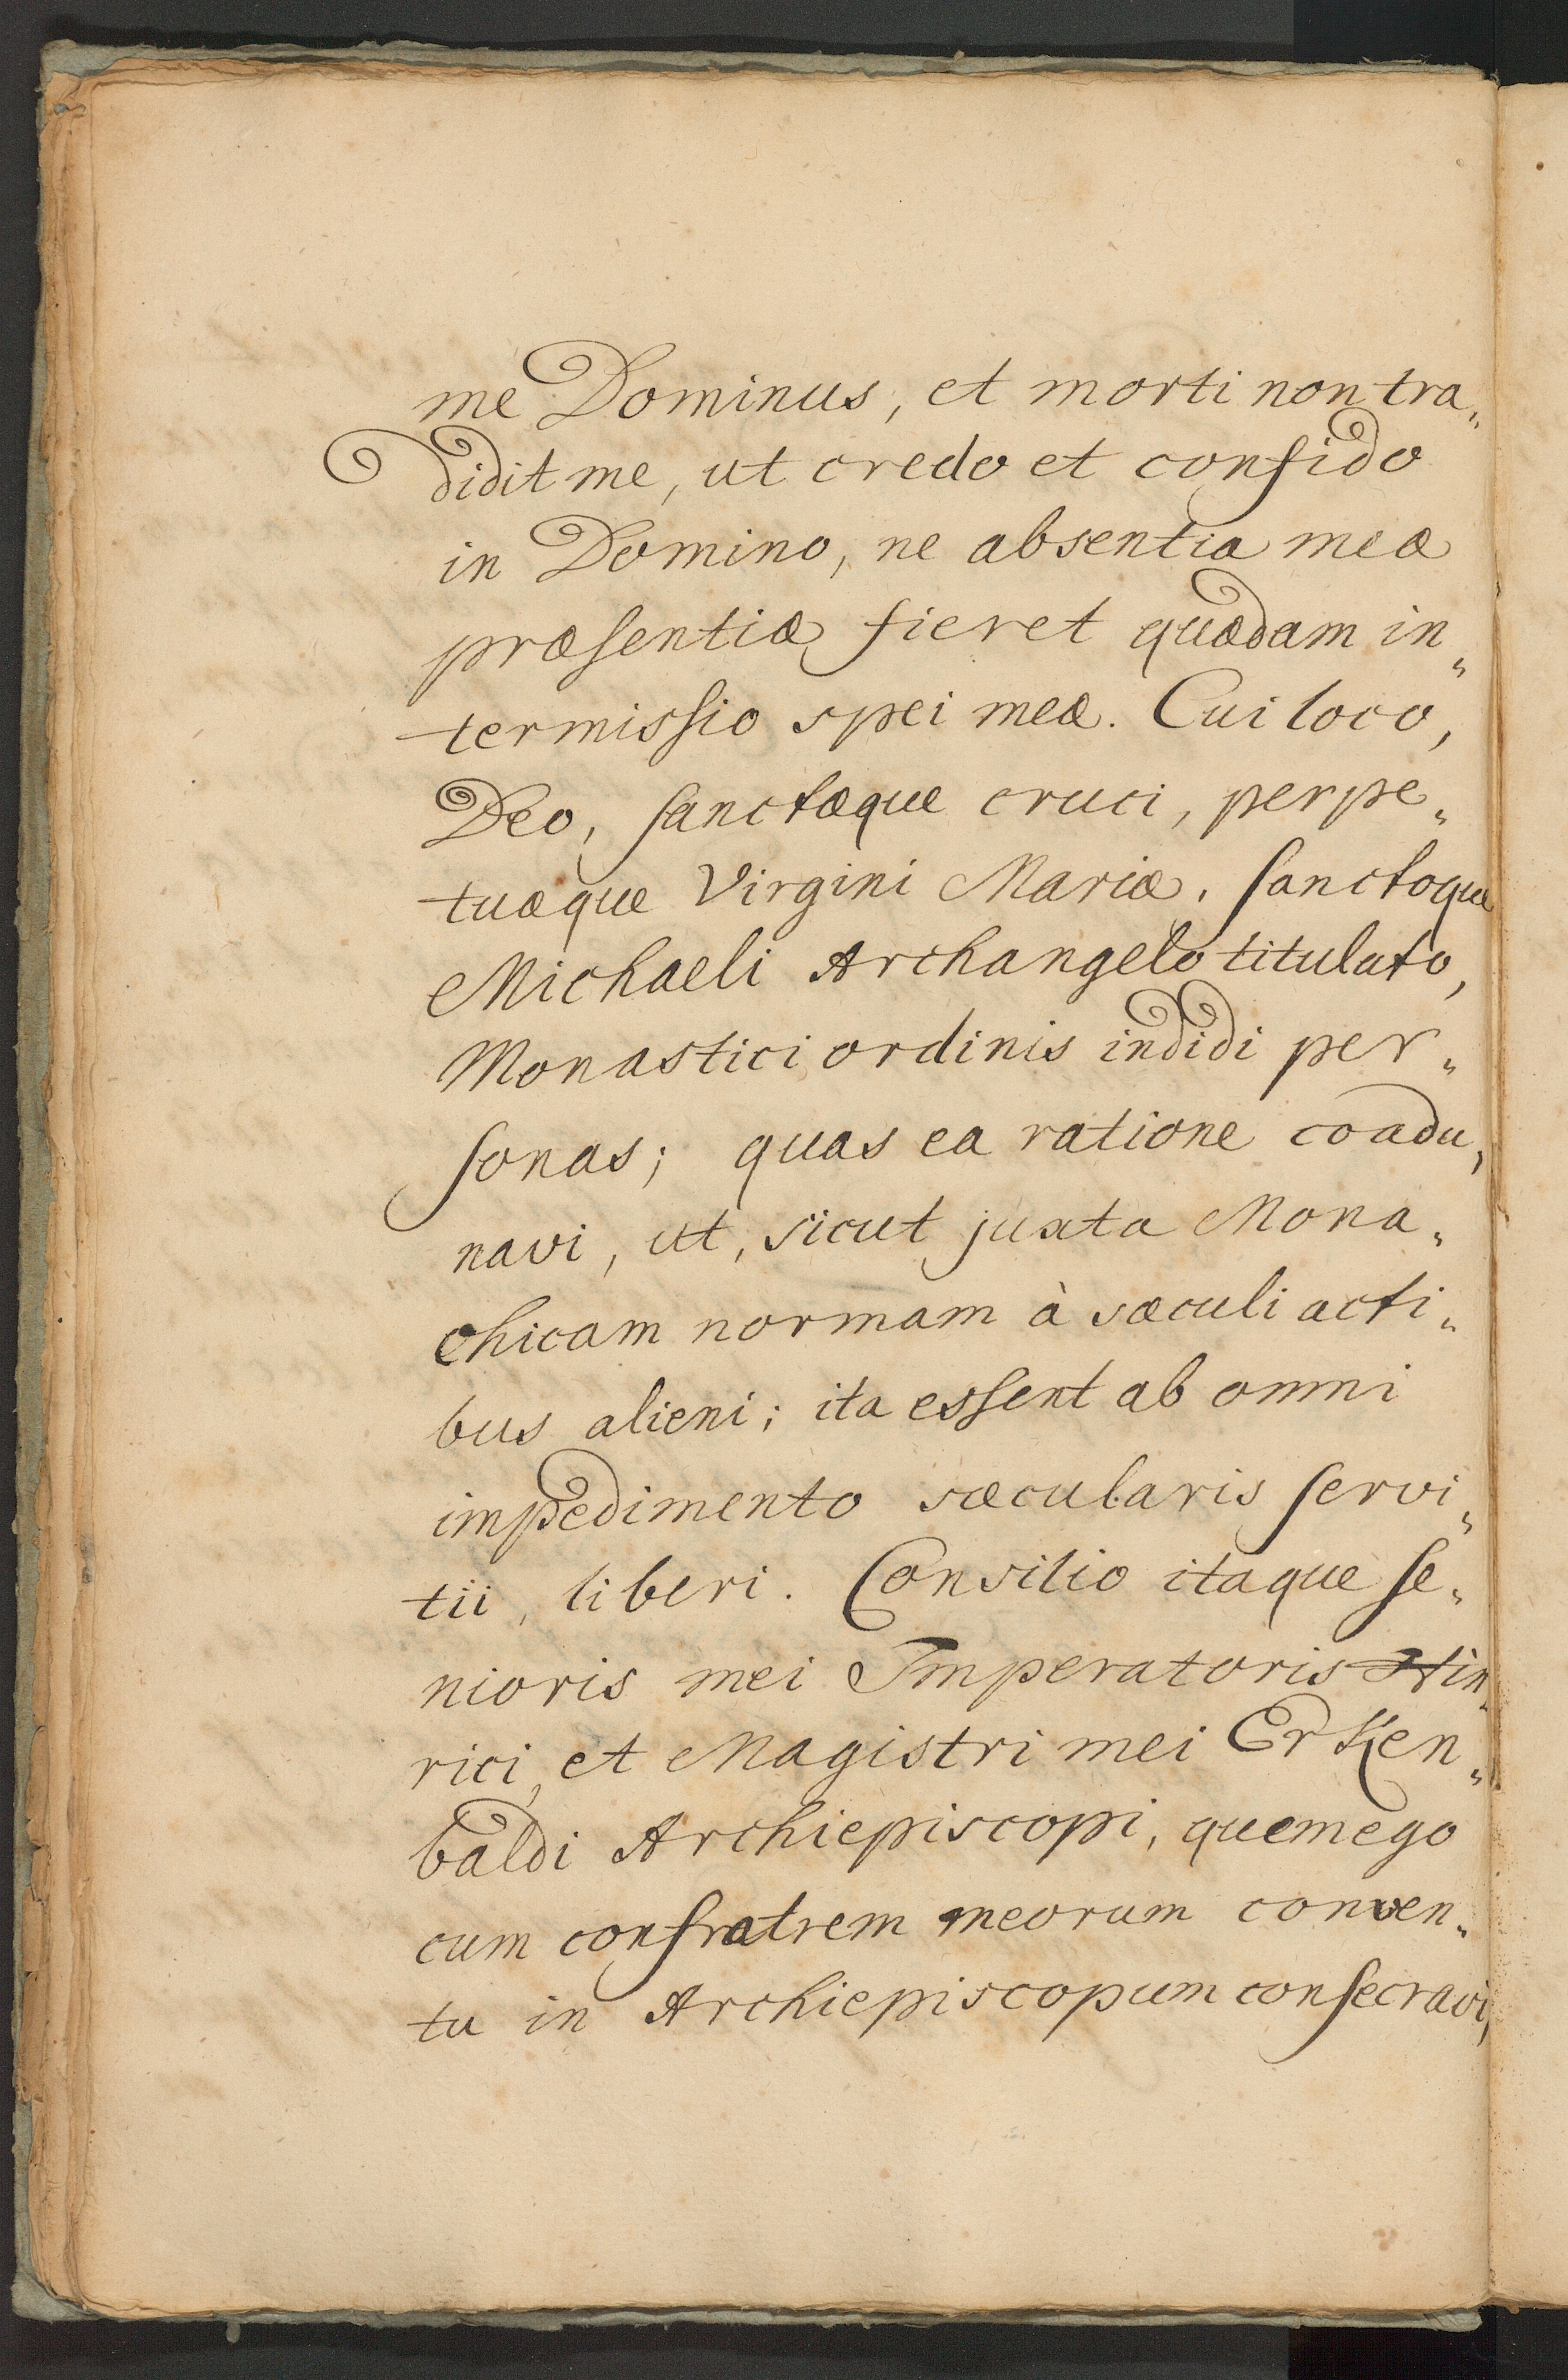 me Dominus, et morti non tra„
didit me, ut credo et confido
in Domino, ne absentia meæ
præsentiæ fieret quædam in„
termissio spei meæ. Cui loco,
Deo, sanctæque cruci, perpe„
tuæque Virgini Mariæ, sanctoque
Michaeli Archangelo titulato,
Monastici ordinis indidi per„
sonas; quas ea ratione coadu„
navi, ut, sicut juxta Mona„
chicam normam à sæculi acti„
bus alieni; ita essent ab omni
impedimento sæcularis servi„
tii, liberi. Consilio itaque se„
nioris mei Imperatoris Hin„
rici, et Magistri mei Erken„
baldi Archiepiscopi, quem ego
cum confratrem meorum conven„
tu in Archiepiscopum consecravi,